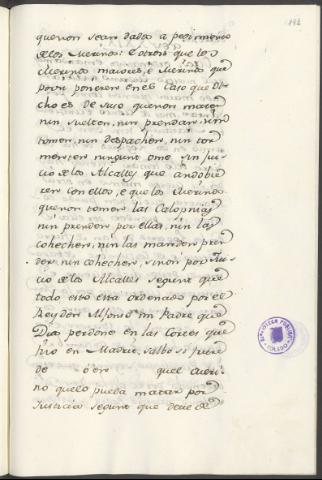 192
que non sean dados a pedimiento
de los Merinos: E otrosi que los
Merinos maiores, é Merinos que
por si pusieren en el caso que di-
cho es de suso que non maten
nin suelten, nin prendan, nin
tomen, nin despachen, nin tor-
menten ningunt ome sin jui-
cio de los Alcalles que andobie-
ren con ellos, é que los Merinos
que non tomen las Calopnias
nin prenden por ellas, nin las
cohechen, nin las manden pren-
der, nin cohechen, sinon por jui-
cio de los Alcalles segunt que
todo esto esta ordenado por el
Rey Don Alfonso mi Padre que
Dios perdone en las Cortes que
fizo en Madrit, salbo si fuere
de ó en quel Meri-
no quelo pueda matar por
Justicia segunt que deve de
BIBLIOTECA PUBLICA
TOLEDO